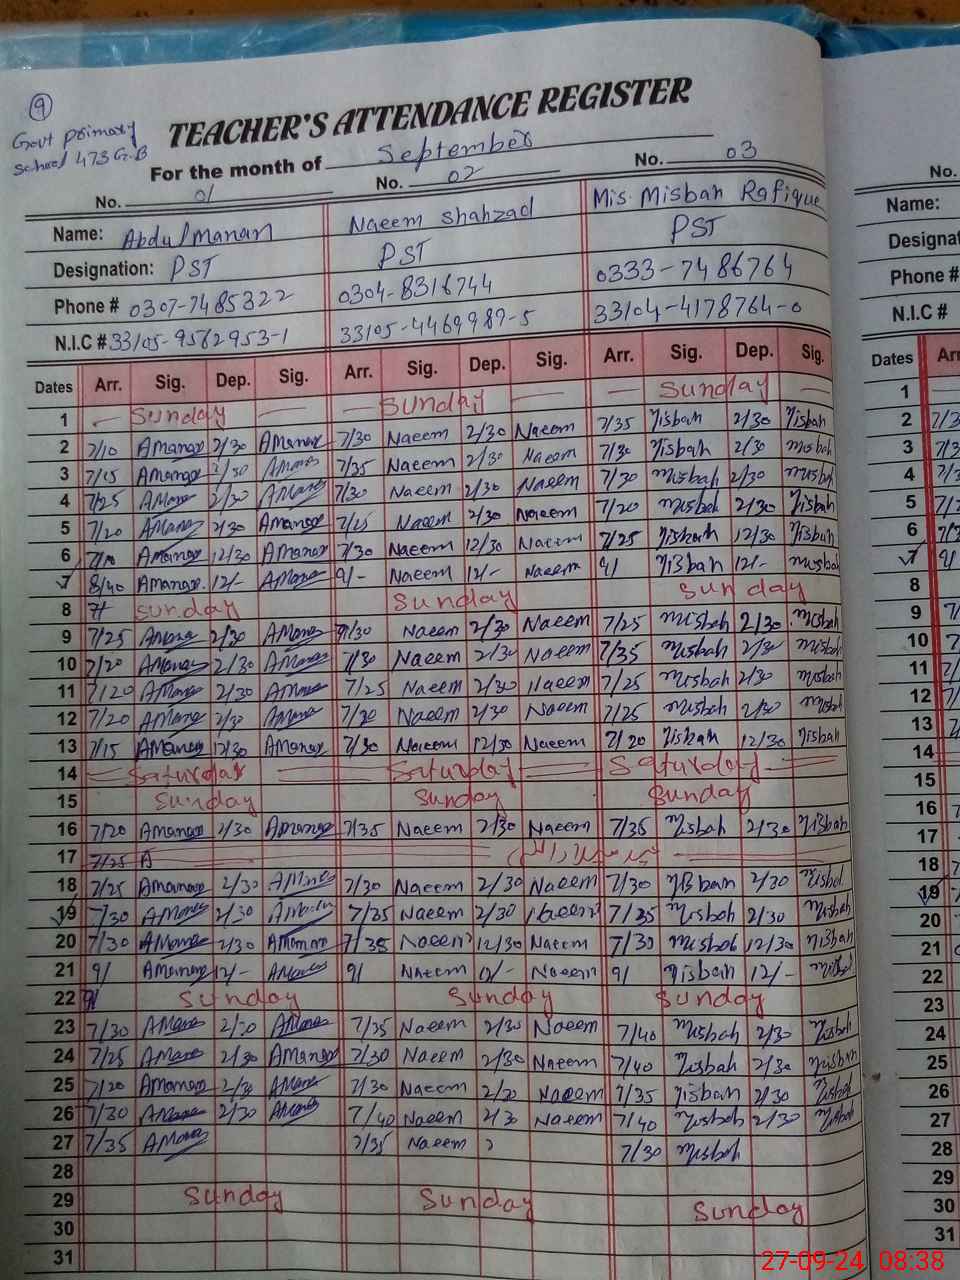 9
Govt primary
school 473 G.B
TEACHER'S ATTENDANCE REGISTER
For the month of September
No. 01 No. 02 No. 03 No.
Name: Abdul Manan Naeem Shahzad Mis. Misbah Rafique Name:
Designation: PST PST PST
Phone # 0307-7485322 0304-8316744 0333-7486764 Phone #
N.I.C # 33105-9562953-1 33105-4469987-5 33104-4178764-0 N.I.C #
Dates Arr. Sig. Dep. Sig. Arr. Sig. Dep. Sig. Arr. Sig. Dep. Sig. Dates
1 Sunday Sunday Sunday 1
2 7/10 AManan 2/30 AManan 7/30 Naeem 2/30 Naeem 7/35 Misbah 2/30 Misbah 2
3 7/15 AManan 2/30 AManan 7/35 Naeem 2/30 Naeem 7/30 Misbah 2/30 Misbah 3
4 7/25 AManan 2/30 AManan 7/30 Naeem 2/30 Naeem 7/30 Misbah 2/30 Misbah 4
5 7/20 AManan 2/30 AManan 7/25 Naeem 2/30 Naeem 7/20 Misbah 2/30 Misbah 5
6 7/10 AManan 12/30 AManan 7/30 Naeem 12/30 Naeem 7/25 Misbah 12/30 Misbah 6
7 8/40 AManan 12/- AManan 9/- Naeem 12/- Naeem 9/ Misbah 12/- Misbah 7
8 Sunday Sunday Sunday 8
9 7/25 AManan 2/30 AManan 7/30 Naeem 2/30 Naeem 7/25 Misbah 2/30 Misbah 9
10 7/20 AManan 2/30 AManan 7/30 Naeem 2/30 Naeem 7/35 Misbah 2/30 Misbah 10
11 7/20 AManan 2/30 AManan 7/25 Naeem 2/30 Naeem 7/25 Misbah 2/30 Misbah 11
12 7/20 AManan 2/30 AManan 7/30 Naeem 2/30 Naeem 7/25 Misbah 2/30 Misbah 12
13 7/15 AManan 12/30 AManan 7/30 Naeem 12/30 Naeem 7/20 Misbah 12/30 Misbah 13
14 Saturday Saturday Saturday 14
15 Sunday Sunday Sunday 15
16 7/20 AManan 2/30 AManan 7/35 Naeem 2/30 Naeem 7/35 Misbah 2/30 Misbah 16
17 7/25 17
18 7/25 AManan 2/30 AManan 7/30 Naeem 2/30 Naeem 7/30 Misbah 2/30 Misbah 18
19 7/30 AManan 2/30 AManan 7/25 Naeem 2/30 Naeem 7/25 Misbah 2/30 Misbah 19
20 7/30 AManan 2/30 AManan 7/35 Naeem 12/30 Naeem 7/30 Misbah 12/30 Misbah 20
21 9/ AManan 12/- AManan 9/ Naeem 12/- Naeem 9/ Misbah 12/- Misbah 21
22 9/ Sunday Sunday Sunday 22
23 7/30 AManan 2/30 AManan 7/35 Naeem 2/30 Naeem 7/40 Misbah 2/30 Misbah 23
24 7/25 AManan 2/30 AManan 7/30 Naeem 2/30 Naeem 7/40 Misbah 2/30 Misbah 24
25 7/20 AManan 2/30 AManan 7/30 Naeem 2/30 Naeem 7/35 Misbah 2/30 Misbah 25
26 7/30 AManan 2/30 AManan 7/40 Naeem 2/30 Naeem 7/40 Misbah 2/30 Misbah 26
27 7/35 AManan 7/35 Naeem 2 7/30 Misbah 27
28 28
29 Sunday Sunday Sunday 29
30 30
31 31
27-09-24 08:38